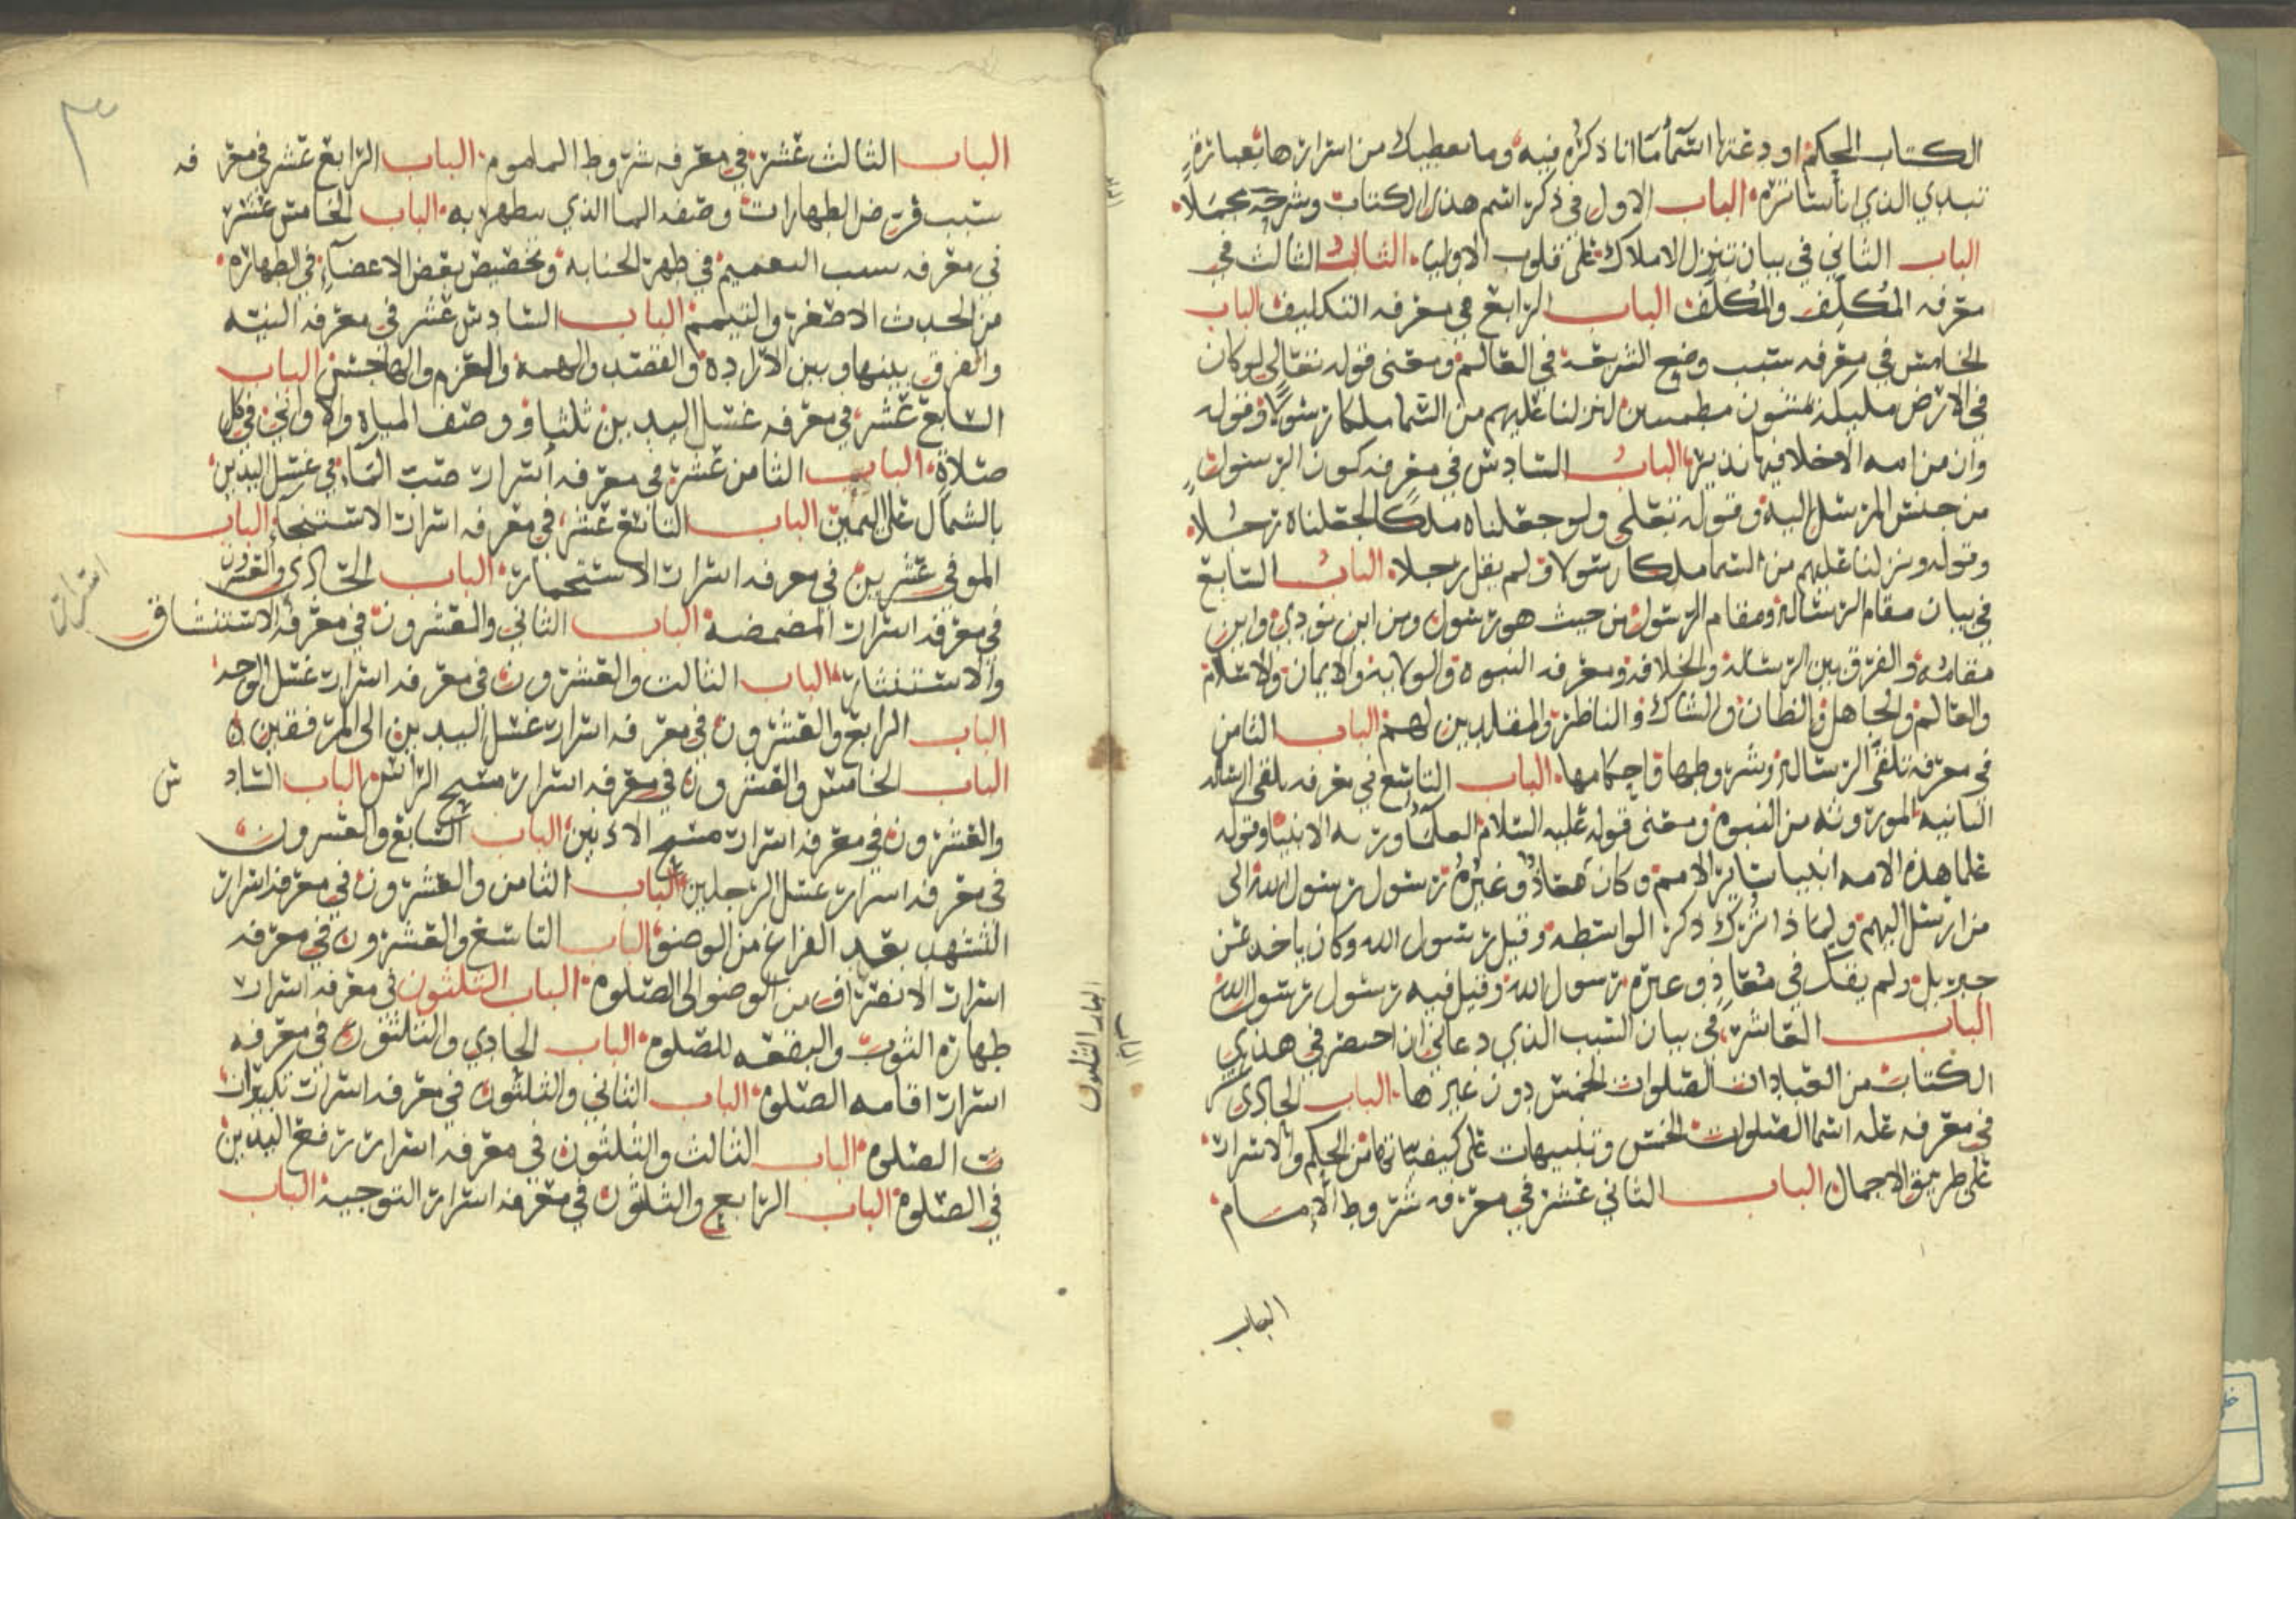 الكتاب المحكم اودعتها اسما ما انا ذاكره فيه وما يعطيك من اسرارها بعبارة
تبدي الذي انا ساتره الباب الاول في ذكر اسم هذا الكتاب وشرحه مجملا
الباب الثاني في بيان تنزل الاملاك على قلوب الاوليا الثالث الثالث في
معرفه المُكلِّف والمُكلَّف الباب الرابع في معرفه التكليف الباب
الخامس في معرفه سبب وضع الشريعة في العالم ومعنى قوله تعالى لو كان
في الارض مليكة يمشون مطمينين لنزلنا عليهم من السما ملكا رسولا وقوله
وان من امه الا خلا فيها نذير الباب السادس في معرفه كون الرسول
من جنس المرسل اليه وقوله تعلى ولو جعلناه ملكا لجعلناه رجلا
وقوله ونزلنا عليهم من السما ملكا رسولا ولم يقل رجلا الباب السابع
في بيان مقام الرسالة ومقام الرسول من حيث هو رسول ومن اين نودي واين
مقامه والفرق بين الرسالة والخلافه ومعرفه النبوه والولاية والايمان والاعلام
والعالم والجاهل والظان والشاك والناظر والمقلدين لهم الباب الثامن
في معرفه تلقي الرسالة وشروطها واحكامها الباب التاسع في معرفه تلقي الرساله
الثانيه الموروثه من النبوه ومعنى قوله عليه السلام العلما ورثه الانبيا وقوله
علما هذه الامه انبيا ساير الامم وكان معاذ وغيره رسول رسول الله الى
من ارسل اليهم ولماذا ترك ذكر الواسطه وقيل رسول الله وكان ياخذ عن
جبريل ولم يقل في معاذ وغيره رسول الله وقيل فيه رسول رسول الله
الباب العاشر في بيان السبب الذي دعاني ان احصر في هذا
الكتاب من العبادات الصلوات الخمس دون غيرها الباب الحادي عشر
في معرفه عله اسما الصلوات الخمس وتنبيهات على كيفياتها من الحكم والاسرار
على طريق الاجمال الباب الثاني عشر في معرفه شروط الامام
الباب
٣
الباب الثالث عشر في معرفه شروط الماموم الباب الرابع عشر في معر فه
سبب فرض الطهارات وصفه الما الذي يتطهر به الباب الخامس عشر
في معرفه سبب التعميم في طهر الجنابه وتخصيص بعض الاعضآء في الطهاره
من الحدث الاصغر والتيمم الباب السادس عشر في معرفه النيته
والفرق بينها وبين الاراده والقصد والهمه والعزم والهاجس الباب
السابع عشر في معرفه غسل اليدين ثلثا ووصف المياه والاواني في كل
صلاة الباب الثامن عشر في معرفه أسرار صب الماء في غسل اليدين
بالشمال على اليمين الباب التاسع عشر في معرفه اسرار الاستنجاء الباب
الموفي عشرين في معرفه اسرار الاستجمار الباب الحادي والعشرون
في معرفه اسرار المضمضه الباب الثاني والعشرون في معرفه الاستنشاق
اسرار
والاستنثار الباب الثالث والعشرون في معرفه اسرار غسل الوجه
الباب الرابع والعشرون في معرفه اسرار غسل اليدين الى المرفقين ه
الباب الخامس والعشرون في معرفه اسرار مسح الراس الباب الساد س
والعشرون في معرفه اسرار مسح الاذنين الباب السابع والعشرون
في معرفه اسرار غسل الرجلين الباب الثامن والعشرون في معرفه اسرار
التشهد بعد الفراغ من الوضو الباب التاسع والعشرون في معرفه
اسرار الانصراف من الوضو الى الصلوه الباب الثلثون في معرفه اسرار
طهاره الثوب والبقعه للصلوه الباب الحادي والثلثون في معرفه
اسرار اقامه الصلوه الباب الثاني والثلثون في معرفه اسرار تكبيرات
ت الصلوه الباب الثالث والثلثون في معرفه اسرار رفع اليدين
في الصلوه الباب الرابع والثلثون في معرفه اسرار التوجيه الباب